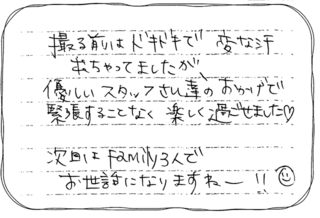 撮る前はドキドキで 変な汗
出ちゃってましたが
優しいスタッフさん達のおかげで
緊張することなく 楽しく過ごせました♡
次回はfamily3人で
お世話になりますねー!!☺